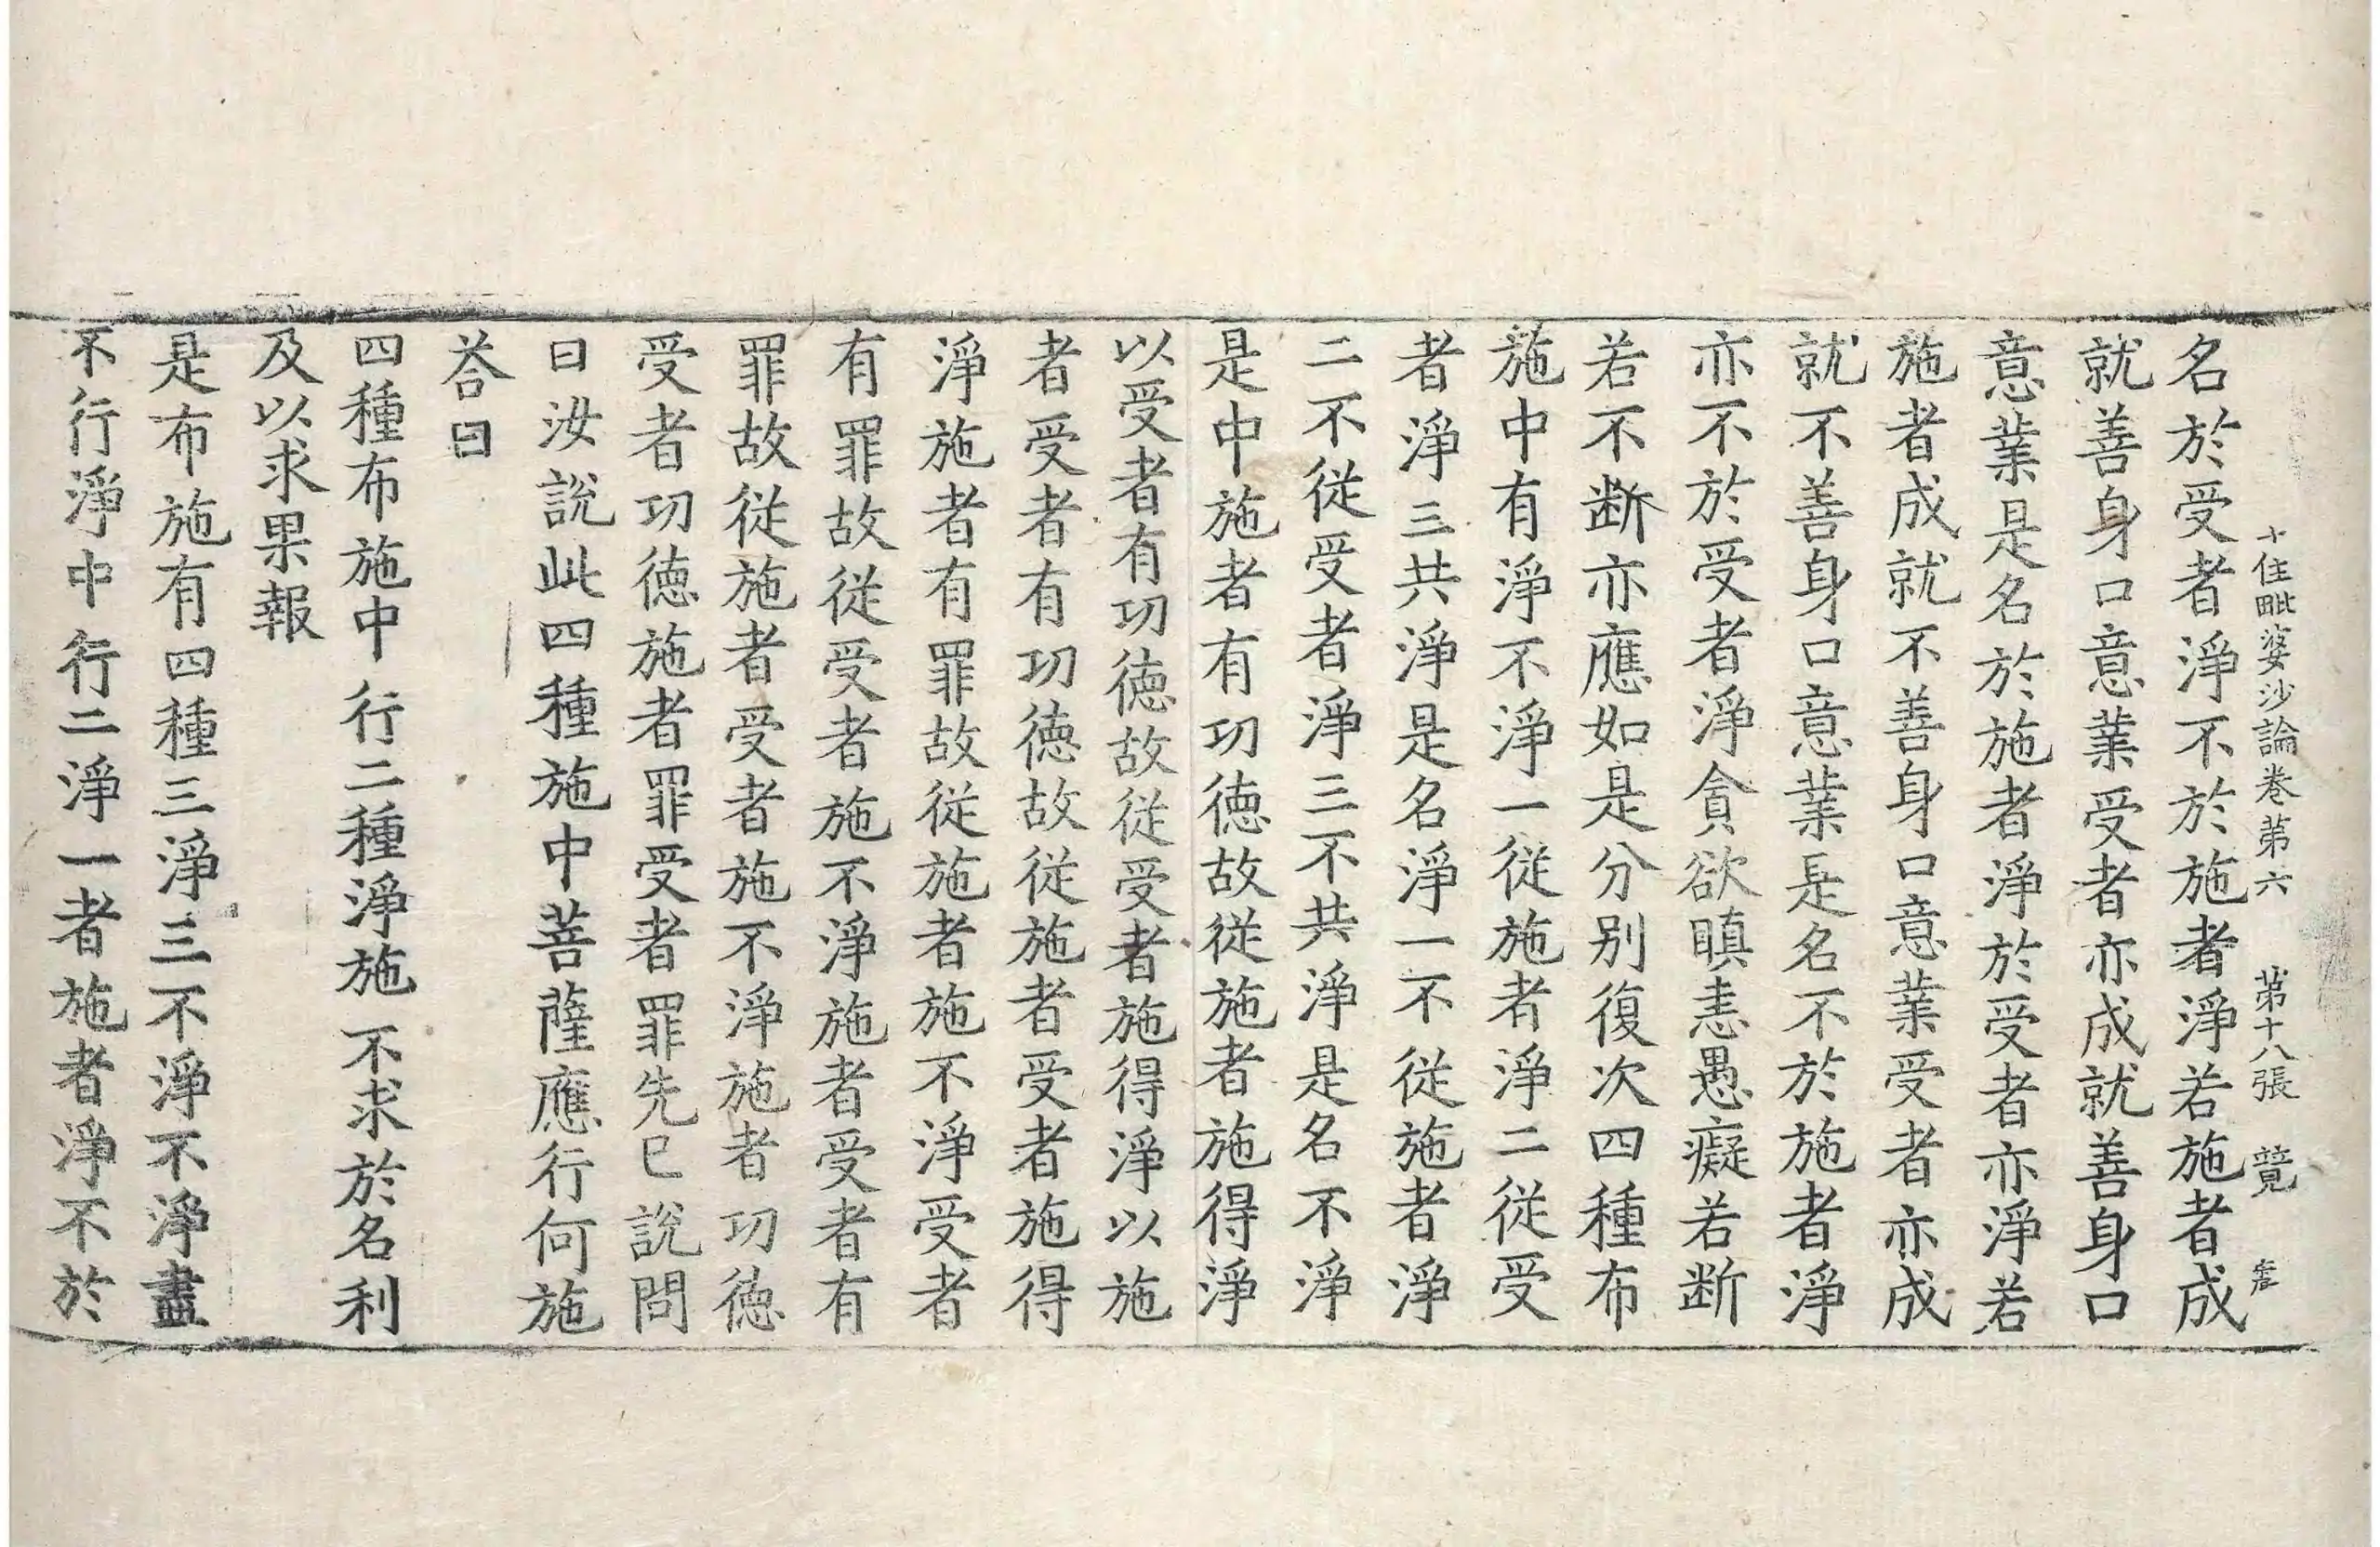 十住毗婆沙論卷苐六 苐十八張 覽
名於受者淨不於施者淨若施者成
就善身口意業受者亦成就善身口
意業是名於施者淨於受者亦淨若
施者成就不善身口意業受者亦成
就不善身口意業是名不於施者淨
亦不於受者淨貪欲瞋恚愚癡若断
若不断亦應如是分别復次四種布
施中有淨不淨一從施者淨二從受
者淨三共淨是名淨一不從施者淨
二不從受者淨三不共淨是名不淨
是中施者有功德故從施者施得淨
以受者有功德故從受者施得淨以施
者受者有功德故從施者受者施得
淨施者有罪故從施者施不淨受者
有罪故從受者施不淨施者受者有
罪故從施者受者施不淨施者功德
受者功德施者罪受者罪先已說問
曰汝說此四種施中菩薩應行何施
荅曰
四種布施中行二種淨施不求於名利
及以求果報
是布施有四種三淨三不淨不淨盡
不行淨中行二淨一者施者淨不於